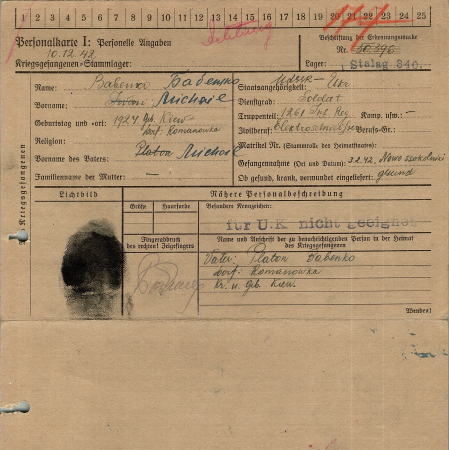 1 2 3 4 5 6 7 8 9 10 11 12 13 14 15 16 17 18 19 20 21 22 23 24 25
Personalkarte I: Personelle Angaben
Beschriftung der Erkennungsmarke
10.12.42
Nr.
Kriegsgefangenen-Stammlager:
Lager: Stalag 340.
Name: Babenko
Staatsangehörigkeit: Ukr
Vorname: Michael
Dienstgrad: Soldat
Truppenteil: 1261 Inf. Reg. Komp. usw.: -
Geburtstag und -ort: 1924 Kiew
dorf. Romanowka
Zivilberuf: Berufs-Gr.:
Religion:
Matrikel Nr. (Stammrolle des Heimatstaates):
Vorname des Vaters: Platon
Gefangennahme (Ort und Datum): 3.2.42.
Familienname der Mutter: -
Ob gesund, krank, verwundet eingeliefert: gesund
Kriegsgefangenen
Lichtbild
Nähere Personalbeschreibung
Größe
Haarfarbe
Besondere Kennzeichen:
für U.K. nicht geeignet
Fingerabdruck
des rechten! Zeigefingers
Name und Anschrift der zu benachrichtigenden Person in der Heimat
des Kriegsgefangenen
Vater: Platon Babenko
dorf: Romanowka
Kr. u. Geb. Kiew.
Wenden!